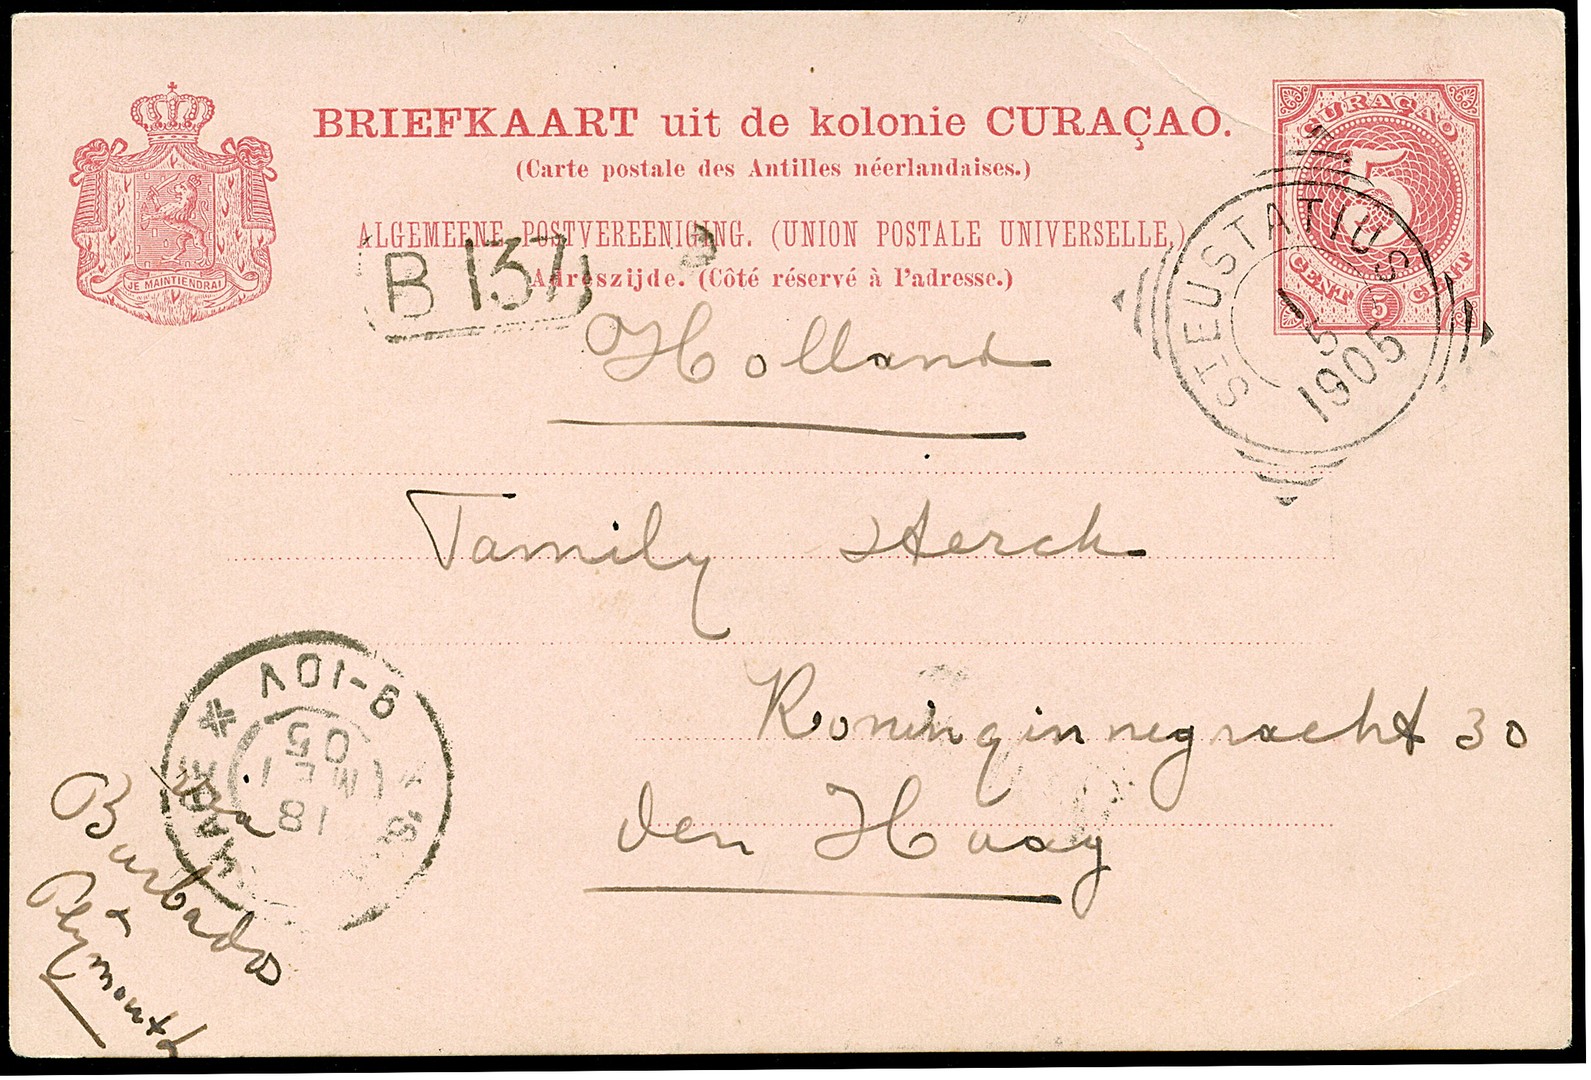 BRIEFKAART uit de kolonie CURAÇAO.
(Carte postale des Antilles néerlandaises.)
ALGEMEENE POSTVEREENIGING. (UNION POSTALE UNIVERSELLE.)
Adreszijde. (Côté réservé à l'adresse.)
JE MAINTIENDRAI
CURAÇAO
5
CENT 5 CENT
ST EUSTATIUS
5 5
1905
B 137
Holland
Family Sterck
Koninginnegracht 30
den Haag
9-10V
18
MEI
05
via
Barbados
&
Plymouth